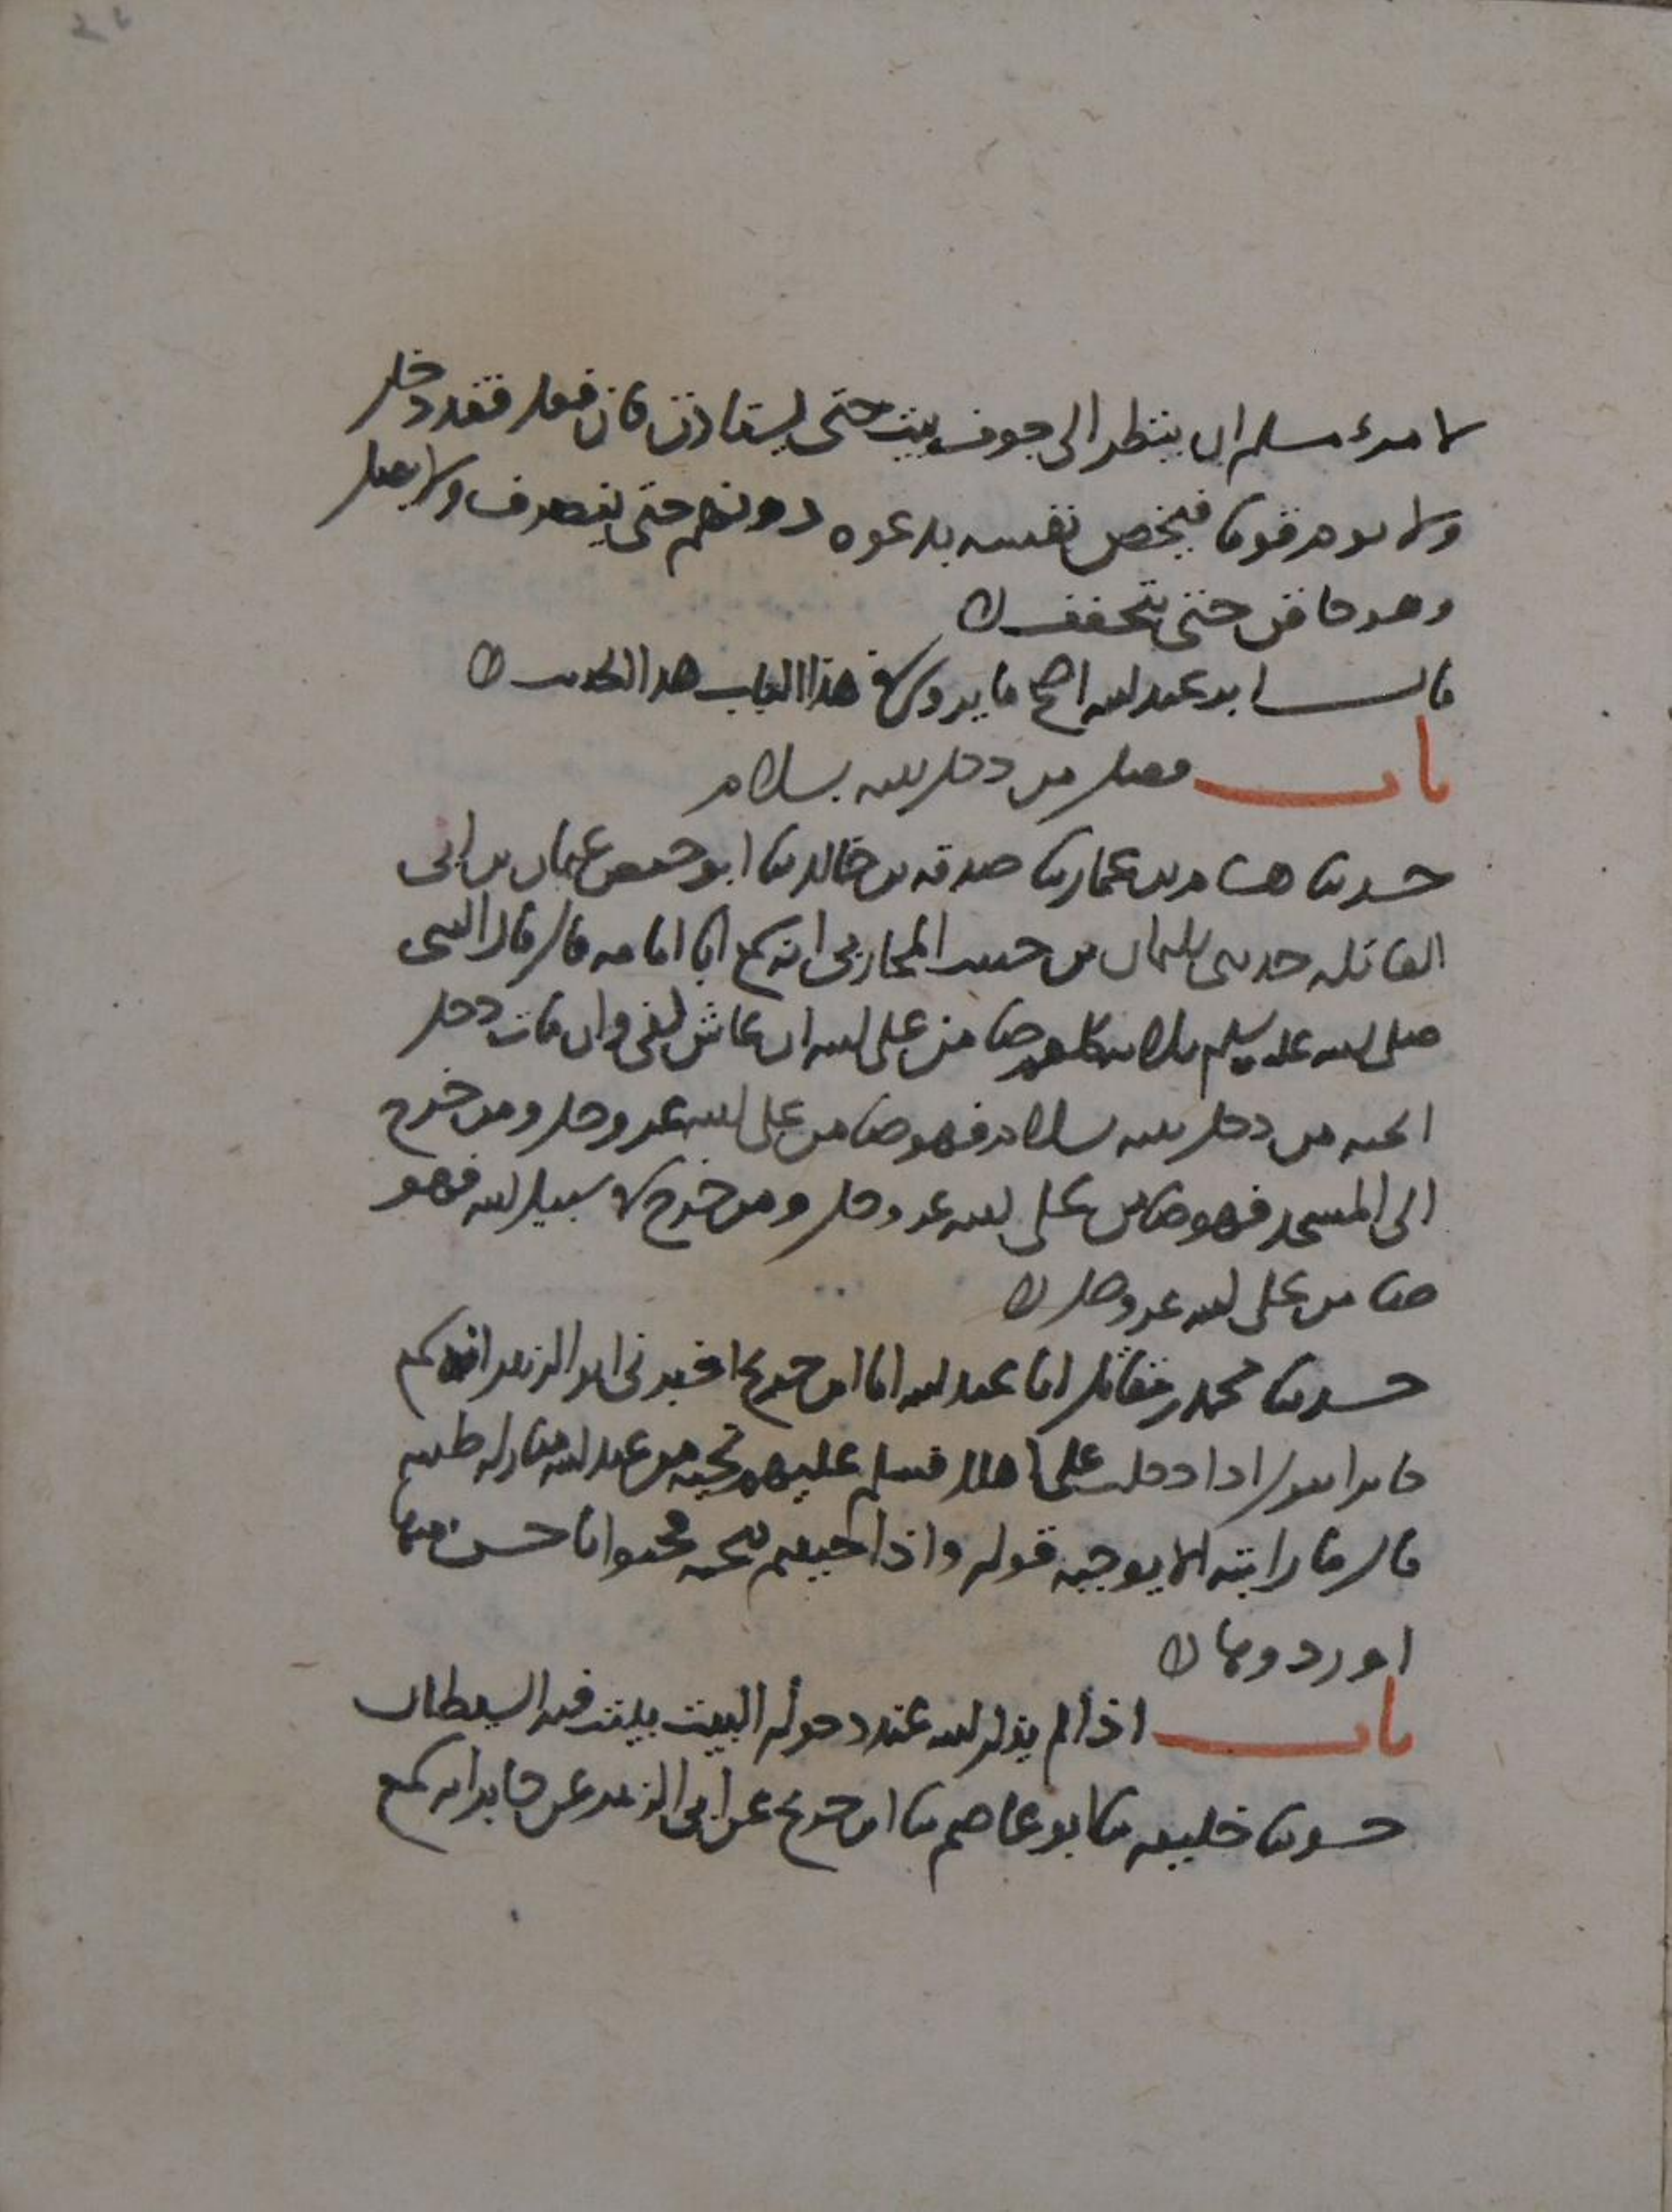 لامرء مسلم ان ينظر الى جوف بيت حتى يستاذن فان فعل فقد دخل
ولا يوم قوما فيخص نفسه بدعوه دونهم حتى ينصرف ولا يصل
وهو حاقن حتى يتخفف
قال ابو عبد الله اصح ما يروى في هذا الباب هذا الحديث
باب فضل من دخل بيته بسلام
حدثنا هشام بن عمار ثنا صدقه بن خالد ثنا ابو حفص عثمان بن ابى
العاتكه حدثنى سليمان بن حبيب المحاربى انه سمع ابا امامه قال قال النبى
صلى الله عليه وسلم ثلاثه كلهم ضامن على الله ان عاش كفى وان مات دخل
الجنه من دخل بيته بسلام فهو ضامن على الله عز وجل ومن خرج
الى المسجد فهو ضامن على الله عز وجل ومن خرج في سبيل الله فهو
ضامن على الله عز وجل
حدثنا محمد بن مقاتل انا عبد الله انا ابن جريج اخبرنى ابو الزبير انه سمع
جابرا يقول اذا دخلت على اهلك فسلم عليهم تحيه من عند الله مباركه طيبه
قال ما رايته الا يوجبه قوله واذا حييتم بتحيه فحيوا باحسن منها
او ردوها
باب اذا لم يذكر الله عند دخوله البيت يبيت فيه الشيطان
حدثنا خليفه ثنا ابو عاصم ثنا ابن جريج عن ابى الزبير عن جابر انه سمع